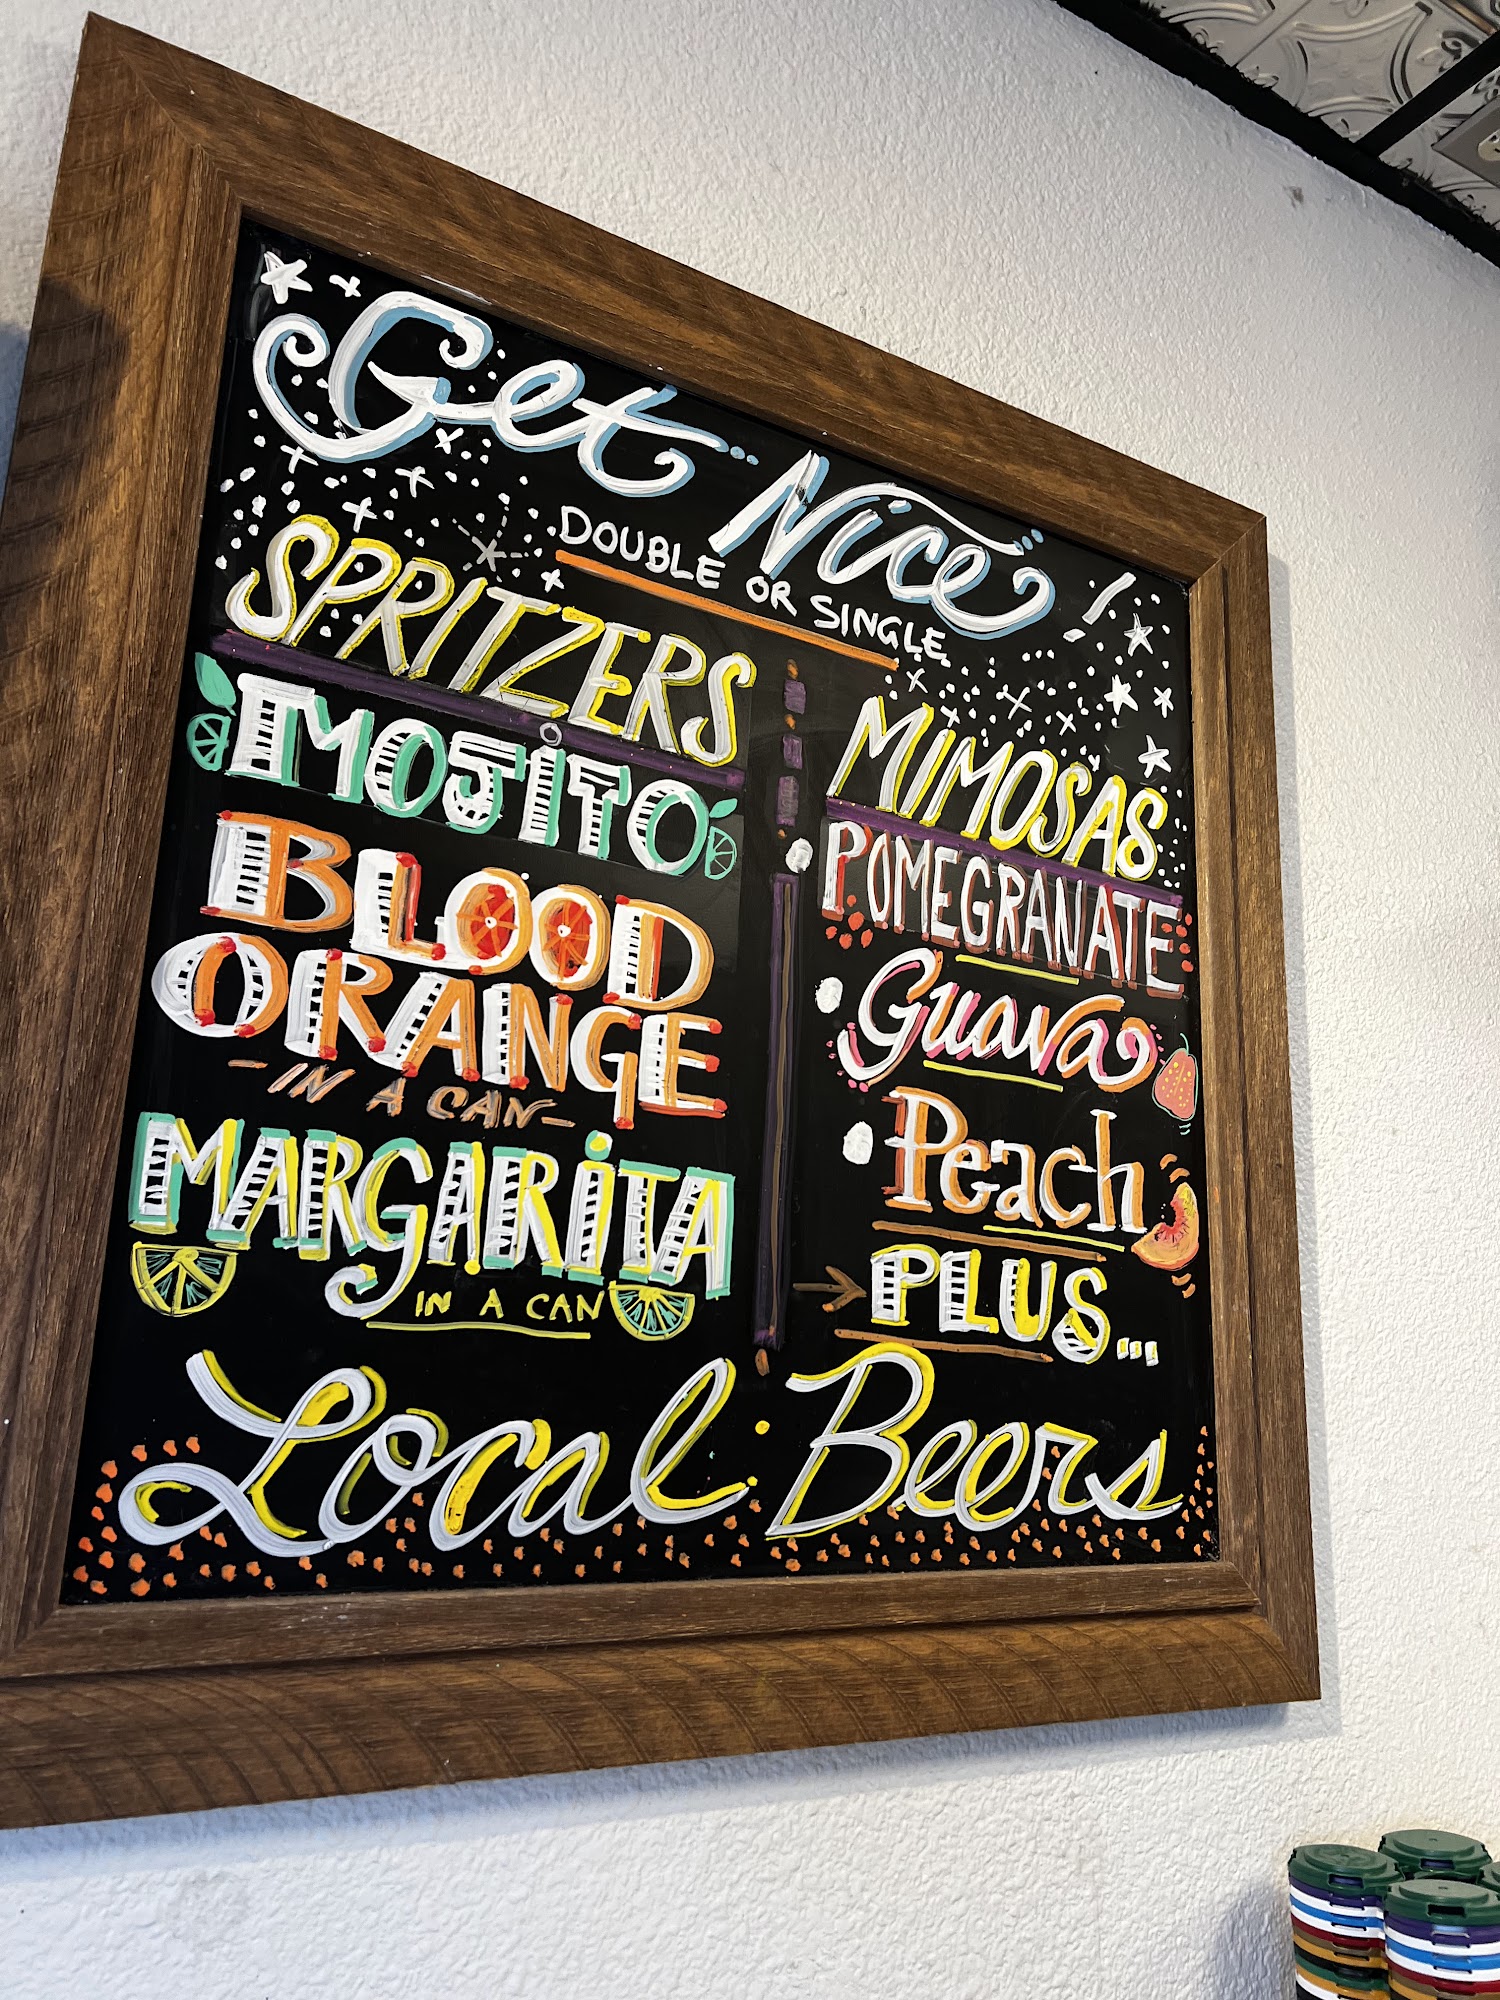 Get Nice!
DOUBLE OR SINGLE
SPRITZERS
MOJITO
BLOOD
ORANGE
-IN A CAN-
MARGARITA
IN A CAN
MIMOSAS
POMEGRANATE
Guava
Peach
PLUS...
Local Beers